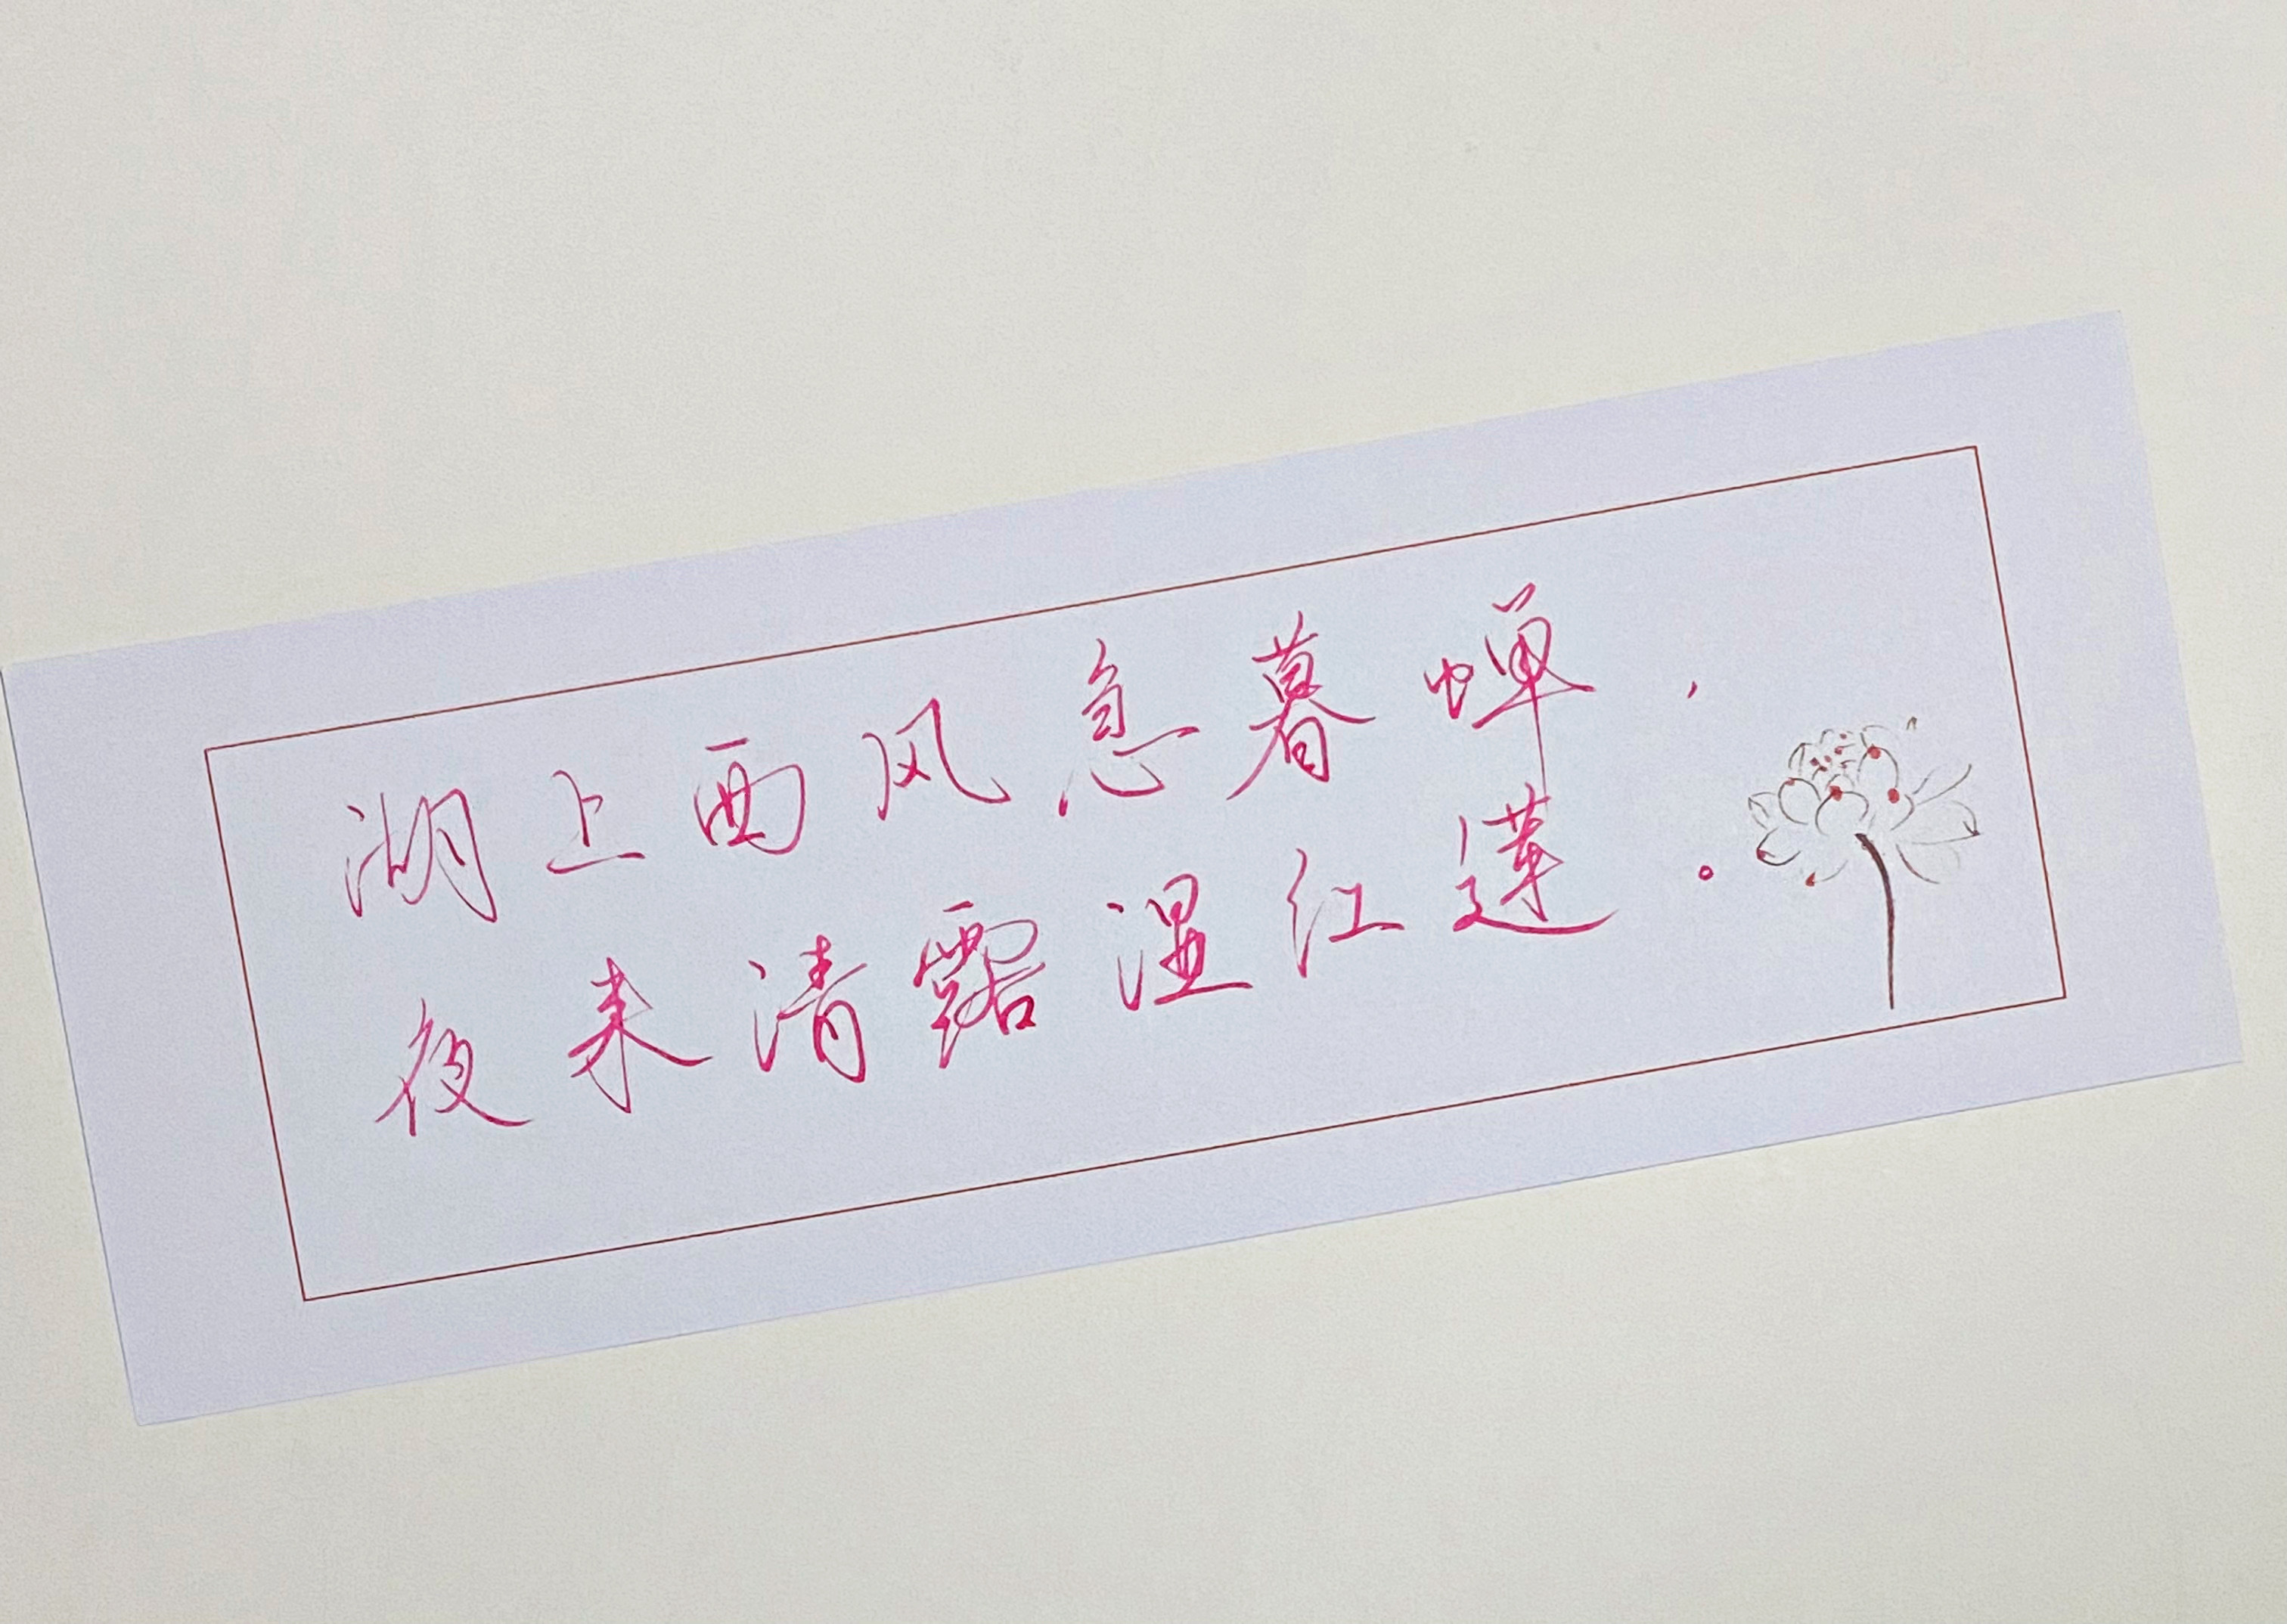 湖上西风急暮蝉，
夜来清露湿红莲。